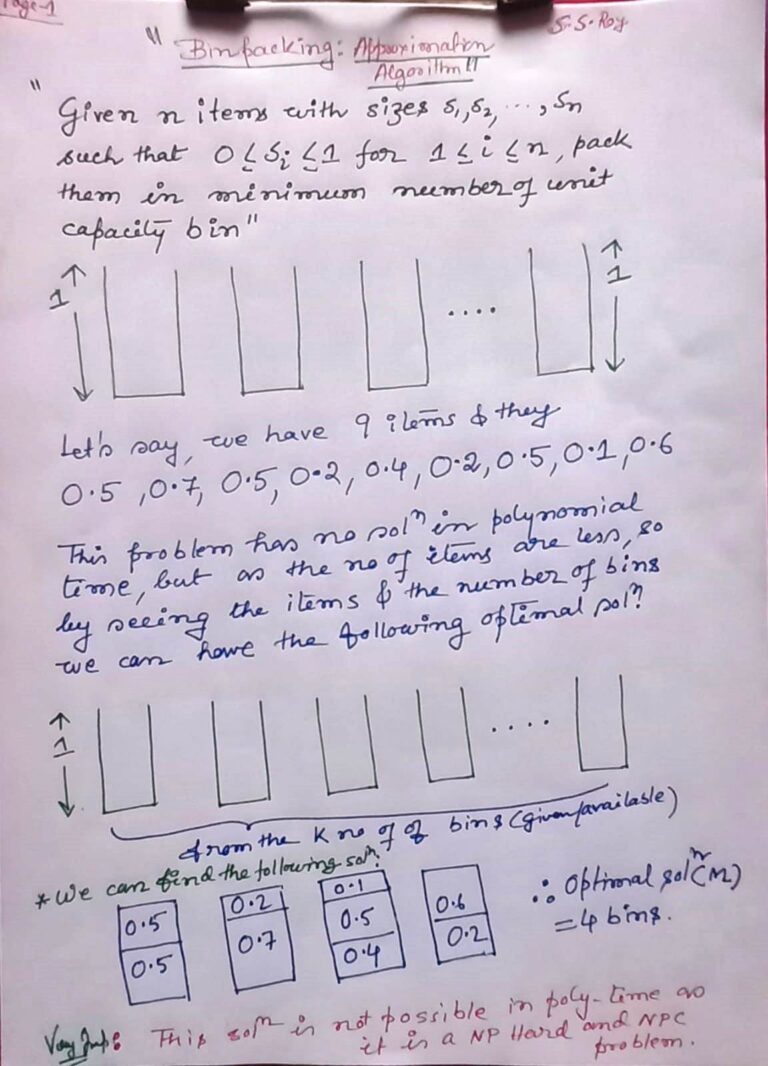 Page-1
S.S. Roy
"Binpacking: Approximation
Algorithm"
"Given n items with sizes s1, s2, ..., sn
such that 0 ≤ Si ≤ 1 for 1 ≤ i ≤ n, pack
them in minimum number of unit
capacity bin"
1 .... 1
Let's say, we have 9 items & they
0.5, 0.7, 0.5, 0.2, 0.4, 0.2, 0.5, 0.1, 0.6
This problem has no solⁿ in polynomial
time, but as the no of items are less, so
by seeing the items & the number of bins
we can have the following optimal solⁿ:
1 ....
from the K no of of bins (given/available)
* We can find the following solⁿ:
0.5 0.2 0.1 0.6
0.5 0.7 0.5 0.2
0.4
∴ Optimal solⁿ(M)
= 4 bins.
Very Imp: This solⁿ is not possible in poly-time as
it is a NP Hard and NPC
problem.